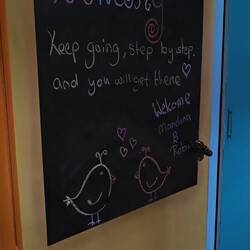 Keep going, step by step.
and you will get there
Welcome
Mandina
&
Robin